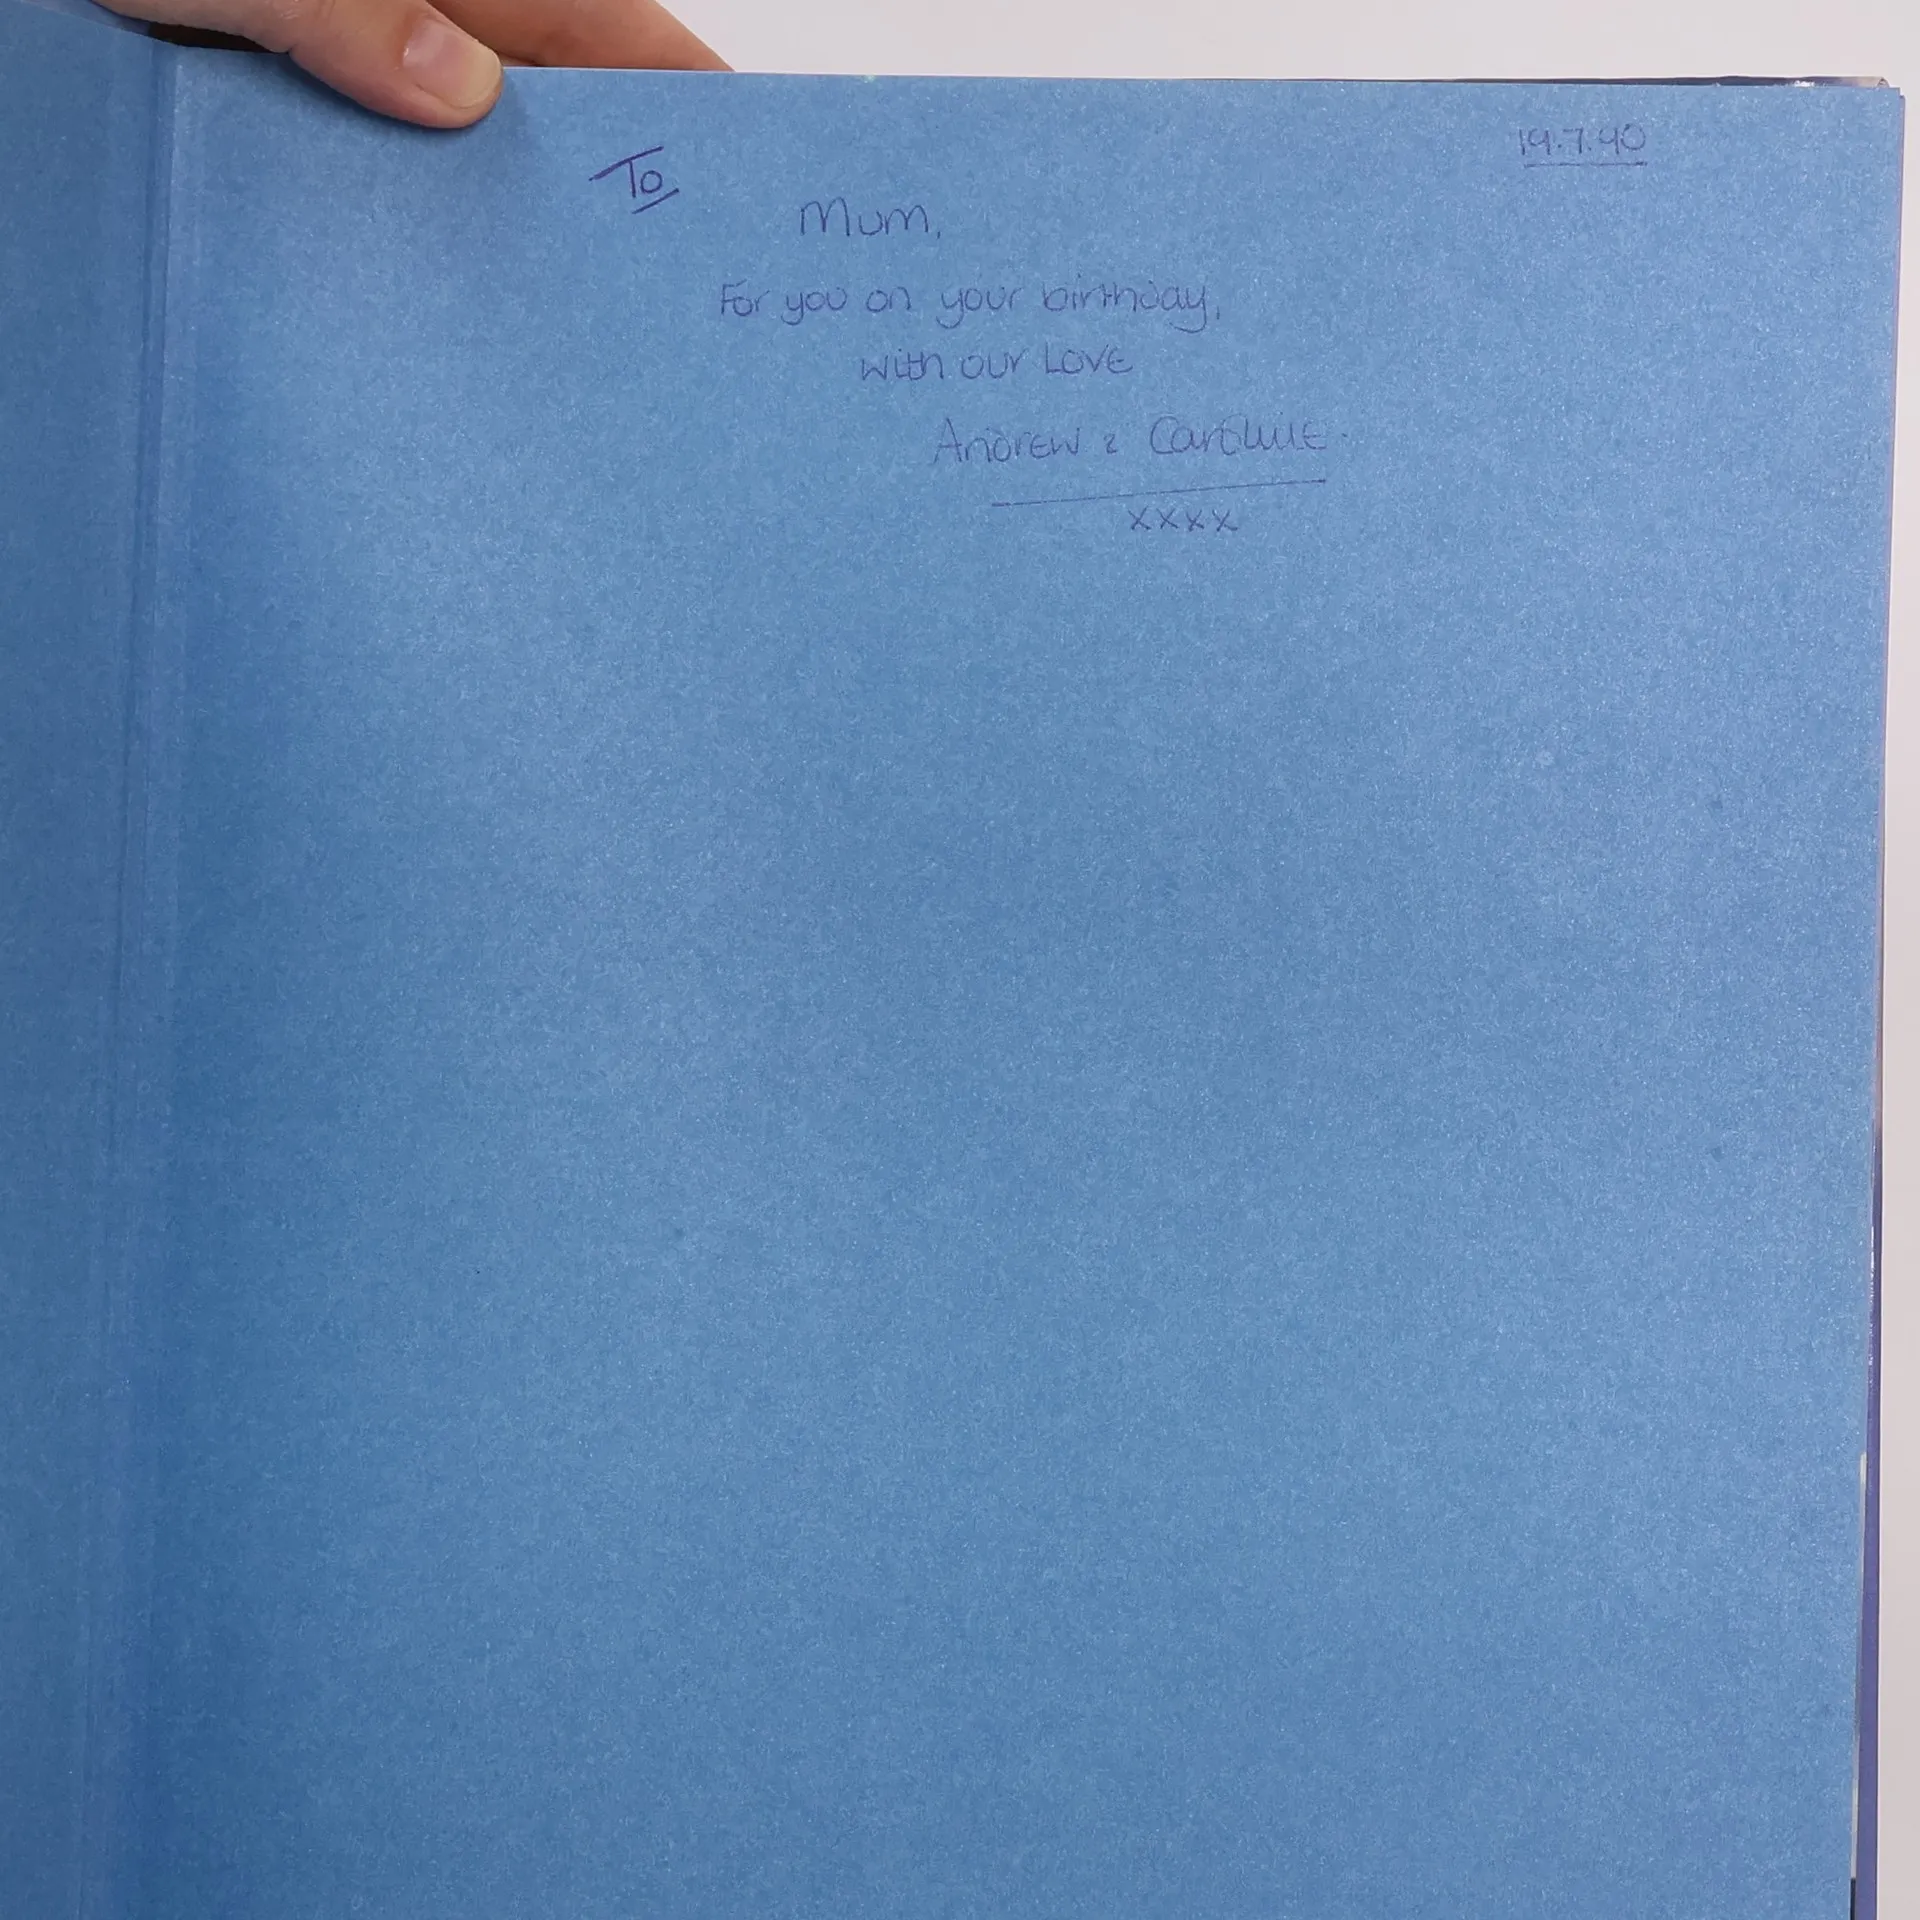 19.7.90
To
Mum,
For you on your birthday,
with our love
Andrew & Caroline.
xxxx